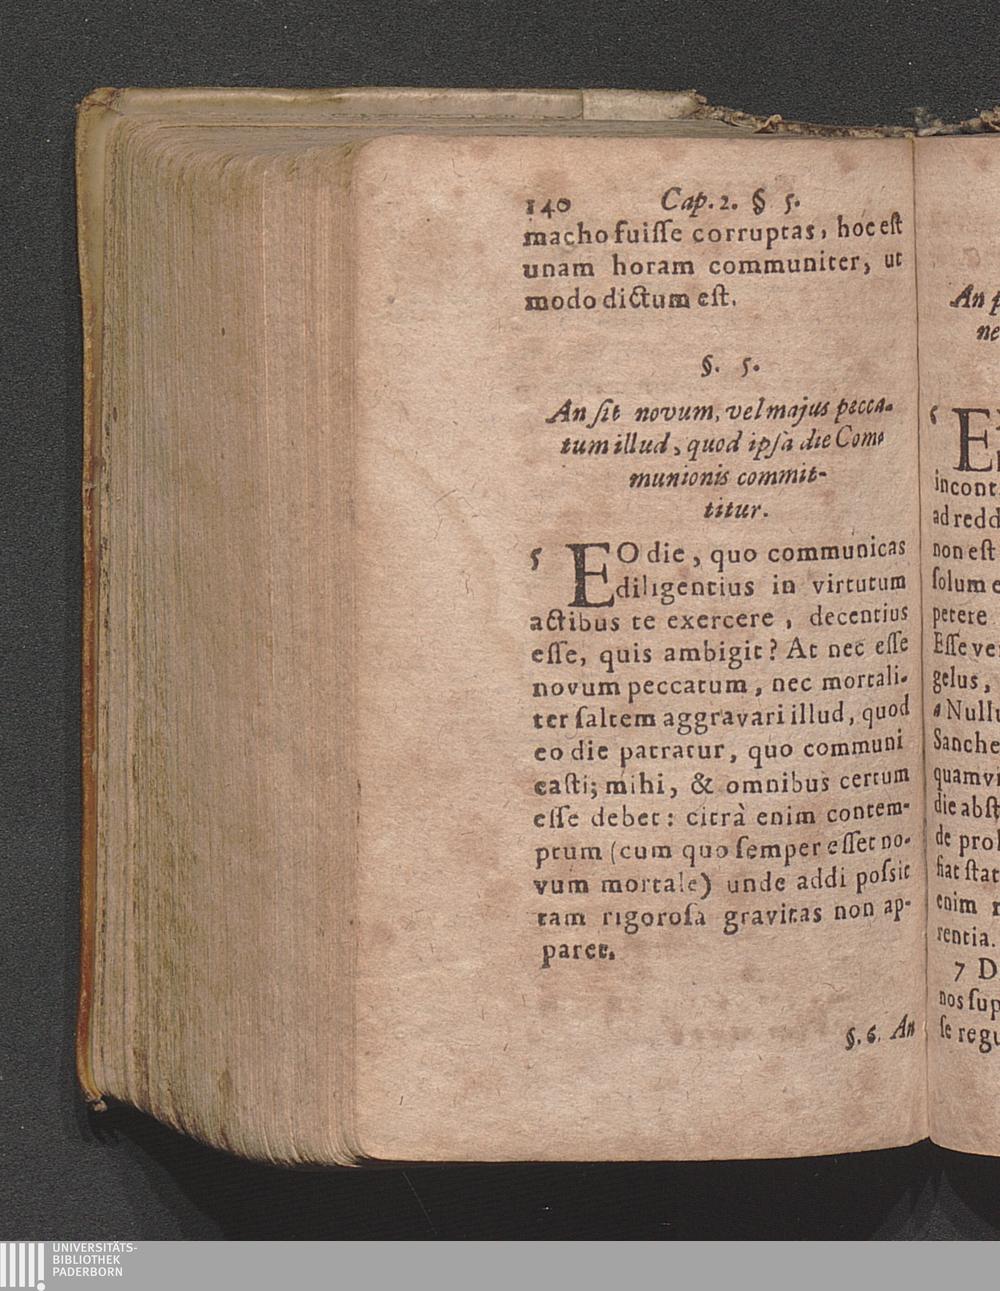 140 Cap. 2. § 5.
macho fuiſſe corruptas, hoc eſt
unam horam communiter, ut
modo dictum eſt.
§. 5.
An ſit novum, vel majus pecca-
tum illud, quod ipſa die Com-
munionis commit-
titur.
5 EO die, quo communicas
diligentius in virtutum
actibus te exercere, decentius
eſſe, quis ambigit? At nec eſſe
novum peccatum, nec mortali-
ter ſaltem aggravari illud, quod
eo die patratur, quo communi
caſti; mihi, & omnibus certum
eſſe debet: citrà enim contem-
ptum (cum quo ſemper eſſet no-
vum mortale) unde addi poſsit
tam rigoroſa gravitas non ap-
paret.
§. 6. An
An p
ne
6 E
incont
ad redd
non eſt
ſolum e
petere
Eſſe ve
gelus,
a Nullu
Sanche
quamvi
die abſt
de prol
fiat ſtat
enim
rentia.
7 D
nos ſup
ſe regu
UNIVERSITÄTS-
BIBLIOTHEK
PADERBORN